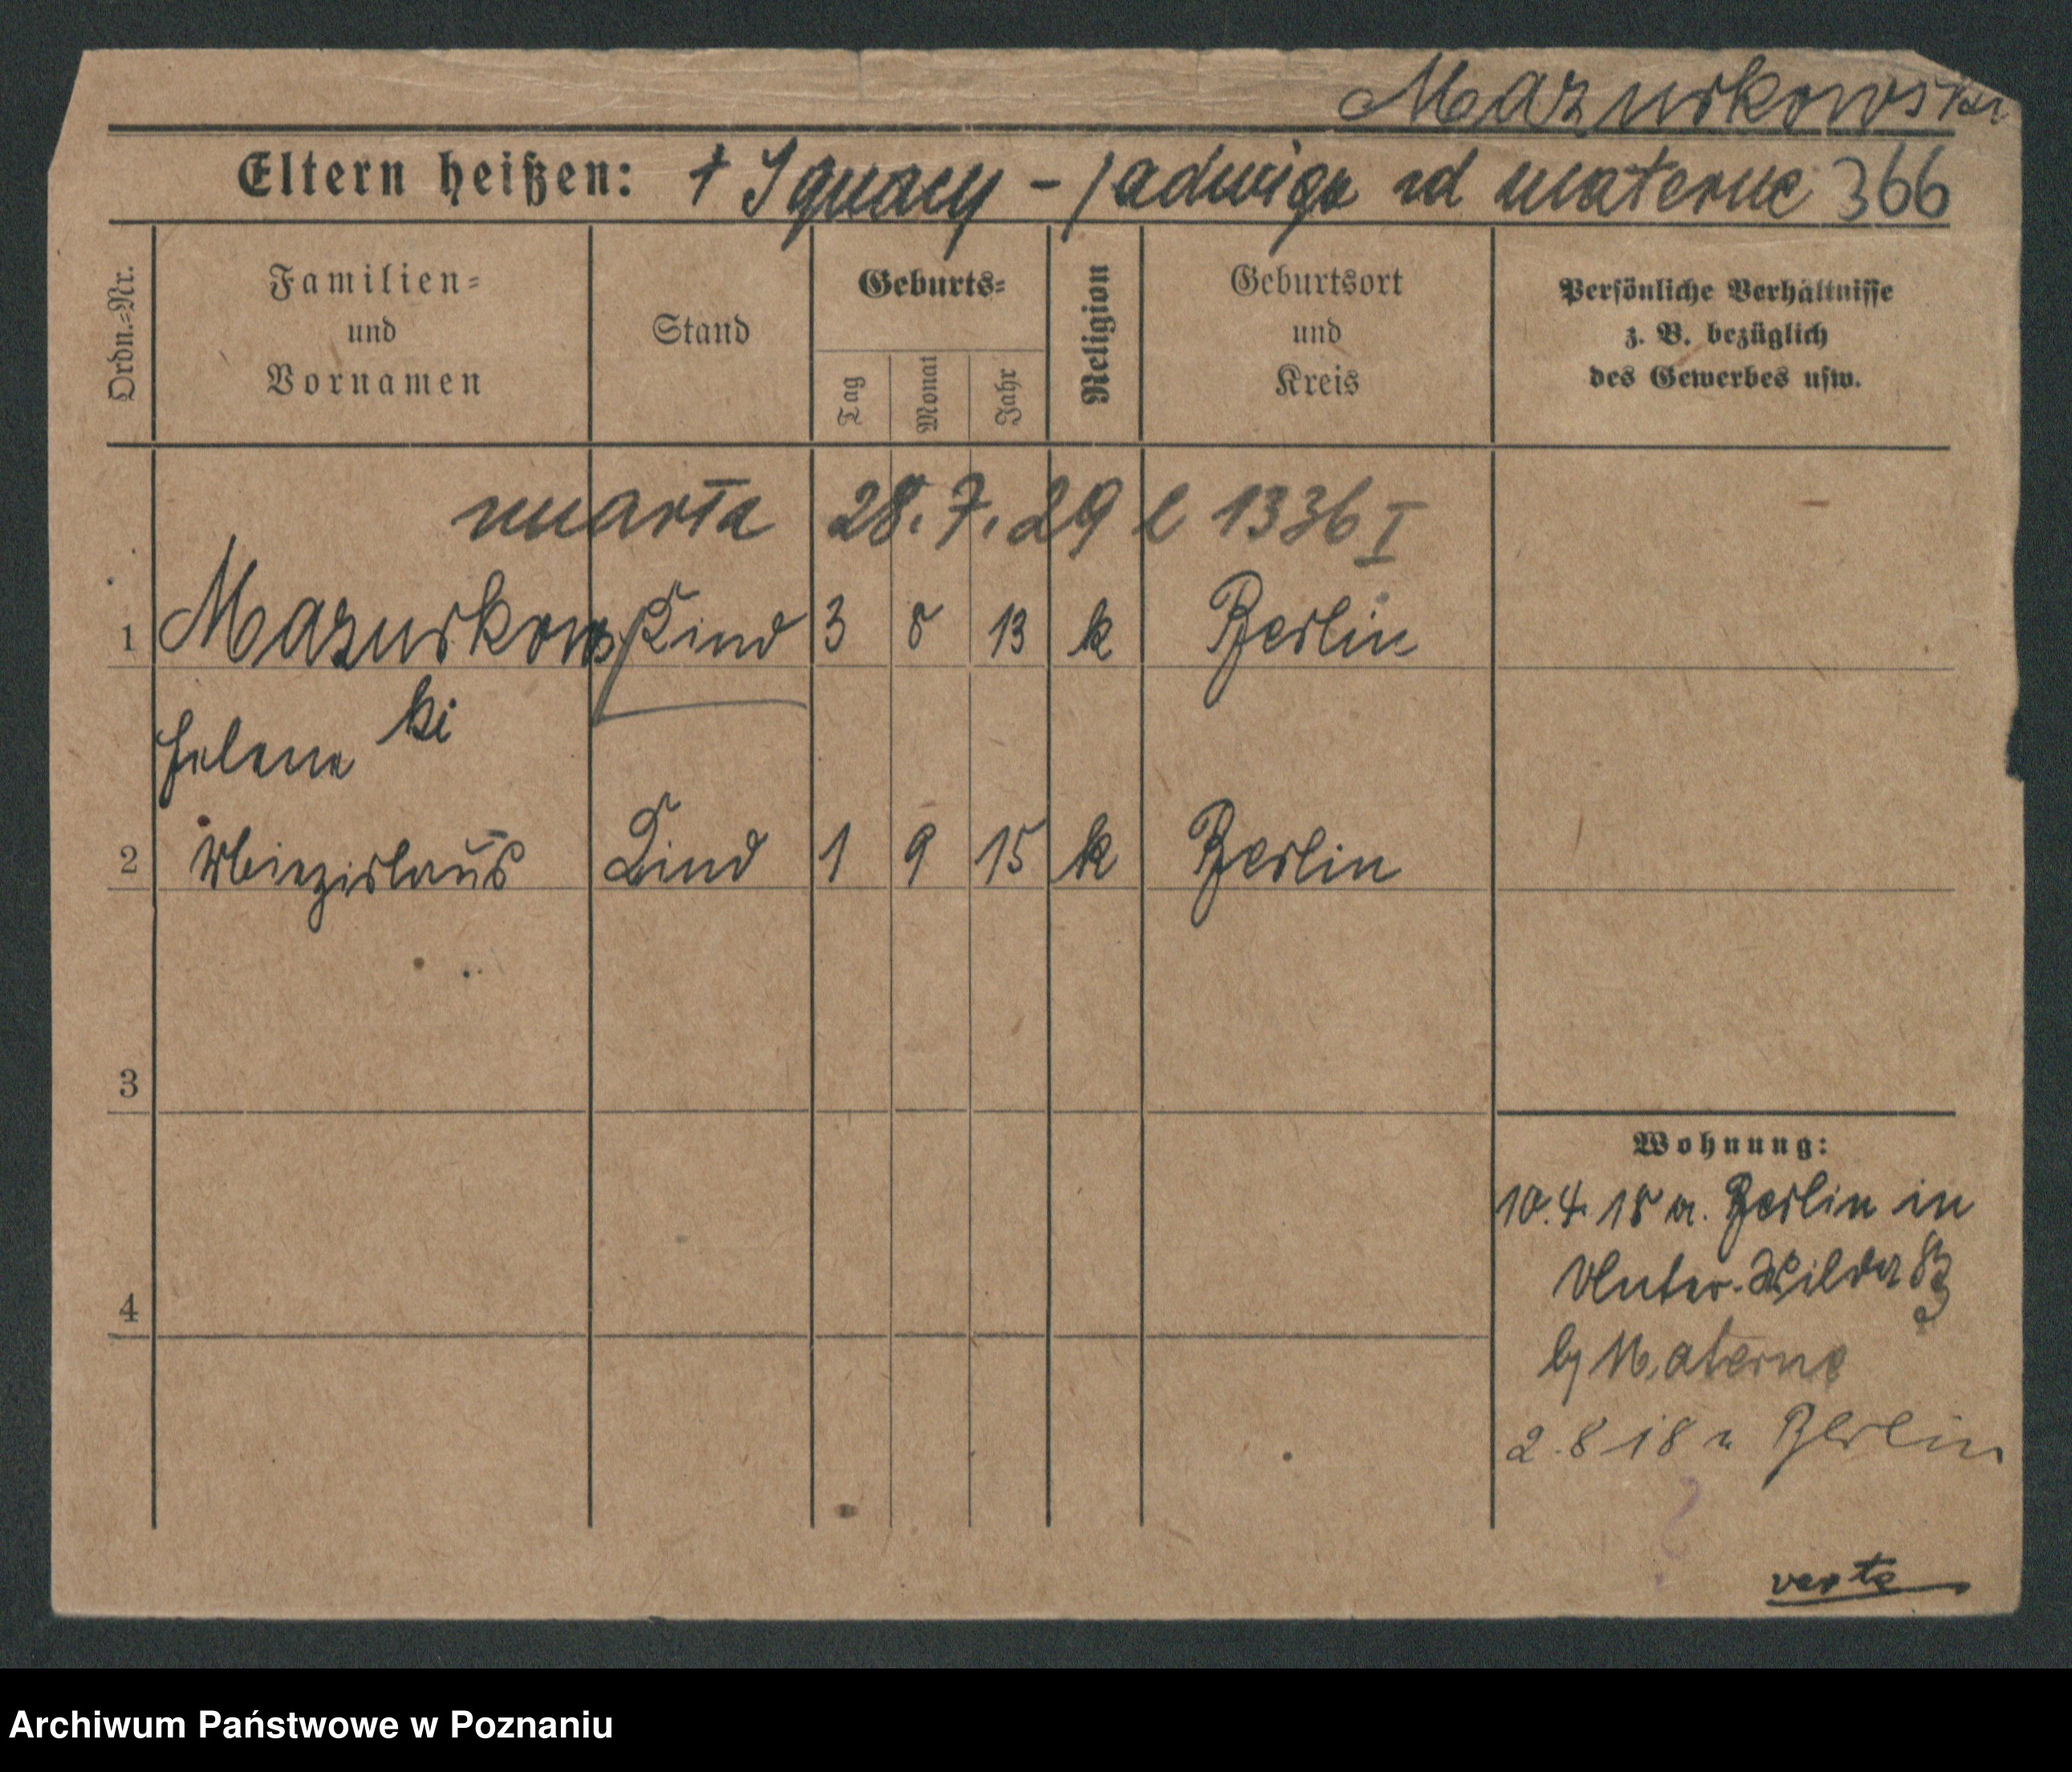 Mazurkowski
Eltern heißen: † Ignacy - Jadwiga zd Materne 366
Ordn.-Nr.
Familien= und Vornamen
Stand
Geburts=
Tag
Monat
Jahr
Religion
Geburtsort und Kreis
Persönliche Verhältnisse z. B. bezüglich des Gewerbes usw.
umarła 28.7.29 l 1336 I
1 Mazurkows Kind 3 8 13 k Berlin
ki
Helene
2 Miezislaus Kind 1 9 15 k Berlin
3
4
Wohnung:
10.4.18 a. Berlin in
Unter-Wilda
by Materne
2.8 18 n Berlin
verte
Archiwum Państwowe w Poznaniu